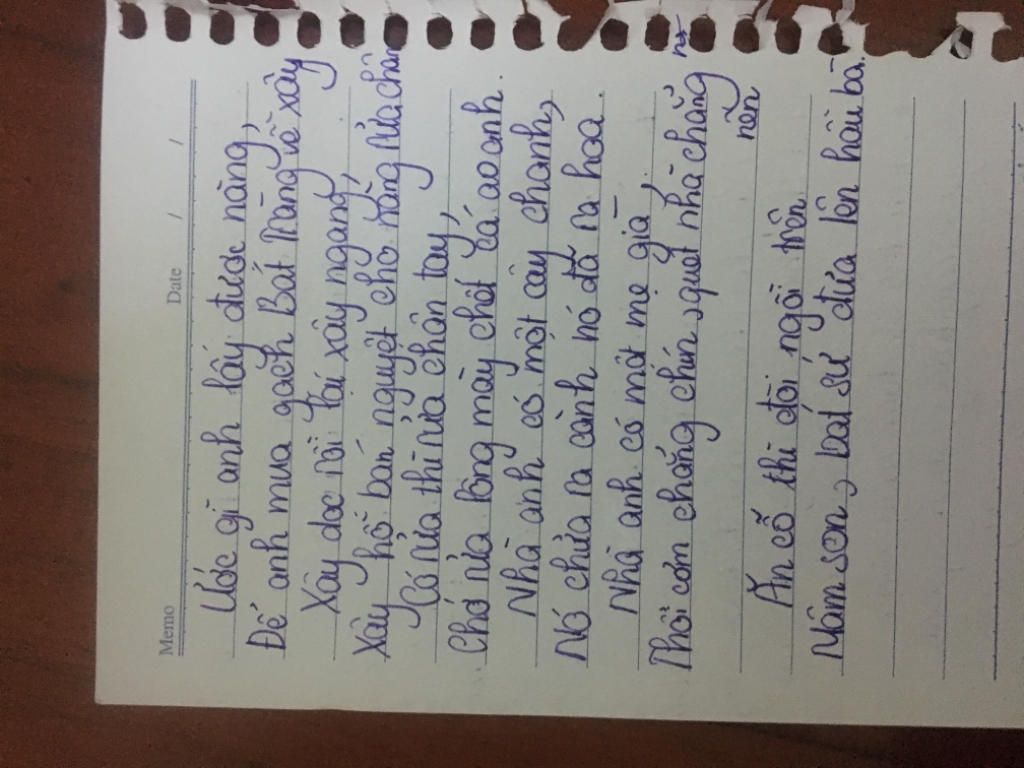 Memo
Date / /
Ước gì anh lấy được nàng,
Để anh mua gạch Bát Tràng về xây
Xây dọc rồi lại xây ngang,
Xây hồ bán nguyệt cho nàng rửa chân
Có rửa thì rửa chân tay,
Chớ rửa lông mày chết cá ao anh.
Nhà anh có một cây chanh,
Nó chửa ra cành nó đã ra hoa.
Nhà anh có một mẹ già,
Thổi cơm chẳng chín, quét nhà chẳng
nên
Ăn cỗ thì đòi ngồi trên
Mâm son, bát sứ đưa lên hầu bà.